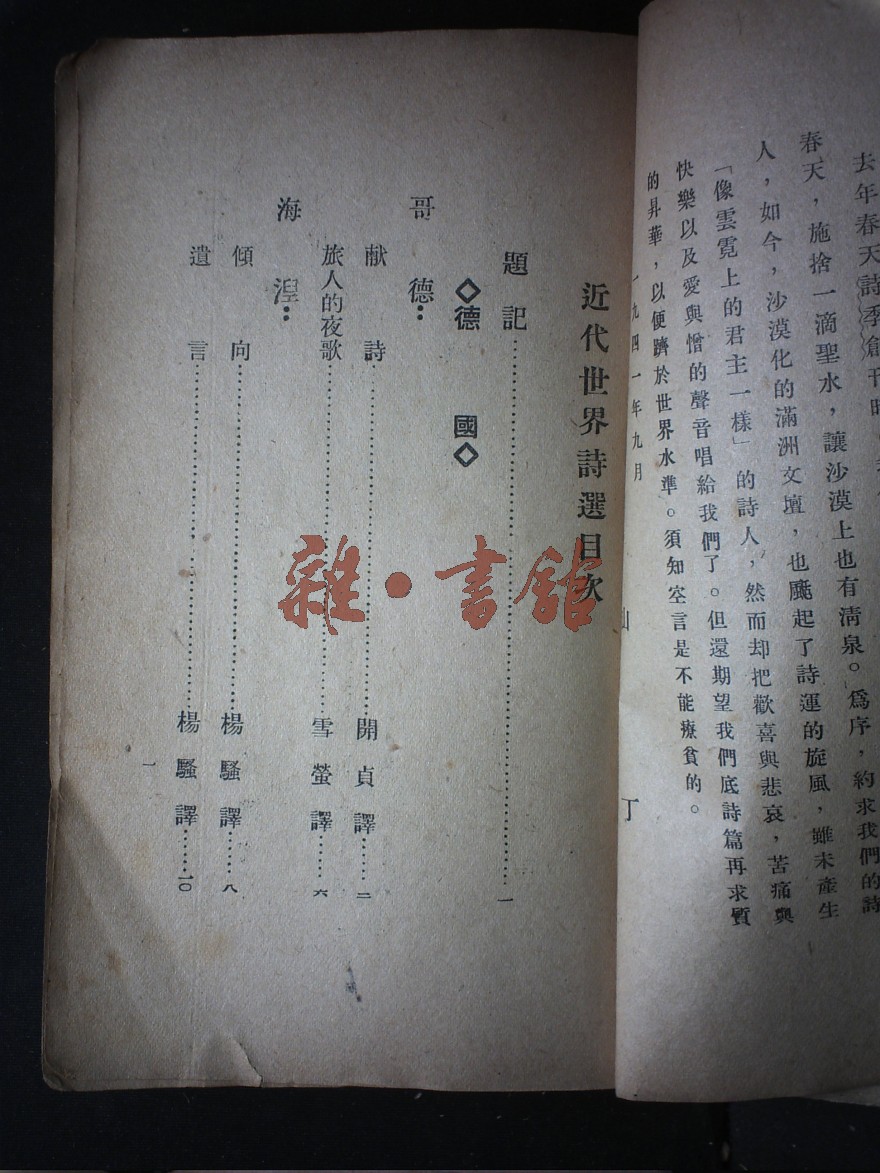 去年春天詩季創刊時
春天，施捨一滴聖水，讓沙漠上也有淸泉。爲序，約求我們的詩
人，如今，沙漠化的滿洲文壇，也颺起了詩運的旋風，雖未產生
「像雲霓上的君主一樣」的詩人，然而却把歡喜與悲哀，苦痛與
快樂以及愛與憎的聲音唱給我們了。但還期望我們底詩篇再求質
的昇華，以便躋於世界水準。須知空言是不能療貧的。
一九四一年九月
山　丁
近代世界詩選目次
題記……一
◇德　國◇
哥　德：
献　詩……開貞譯……二
旅人的夜歌……雪螢譯……六
海　湼：
傾　向……楊騷譯……八
遺　言……楊騷譯……一〇
一
雜·書館